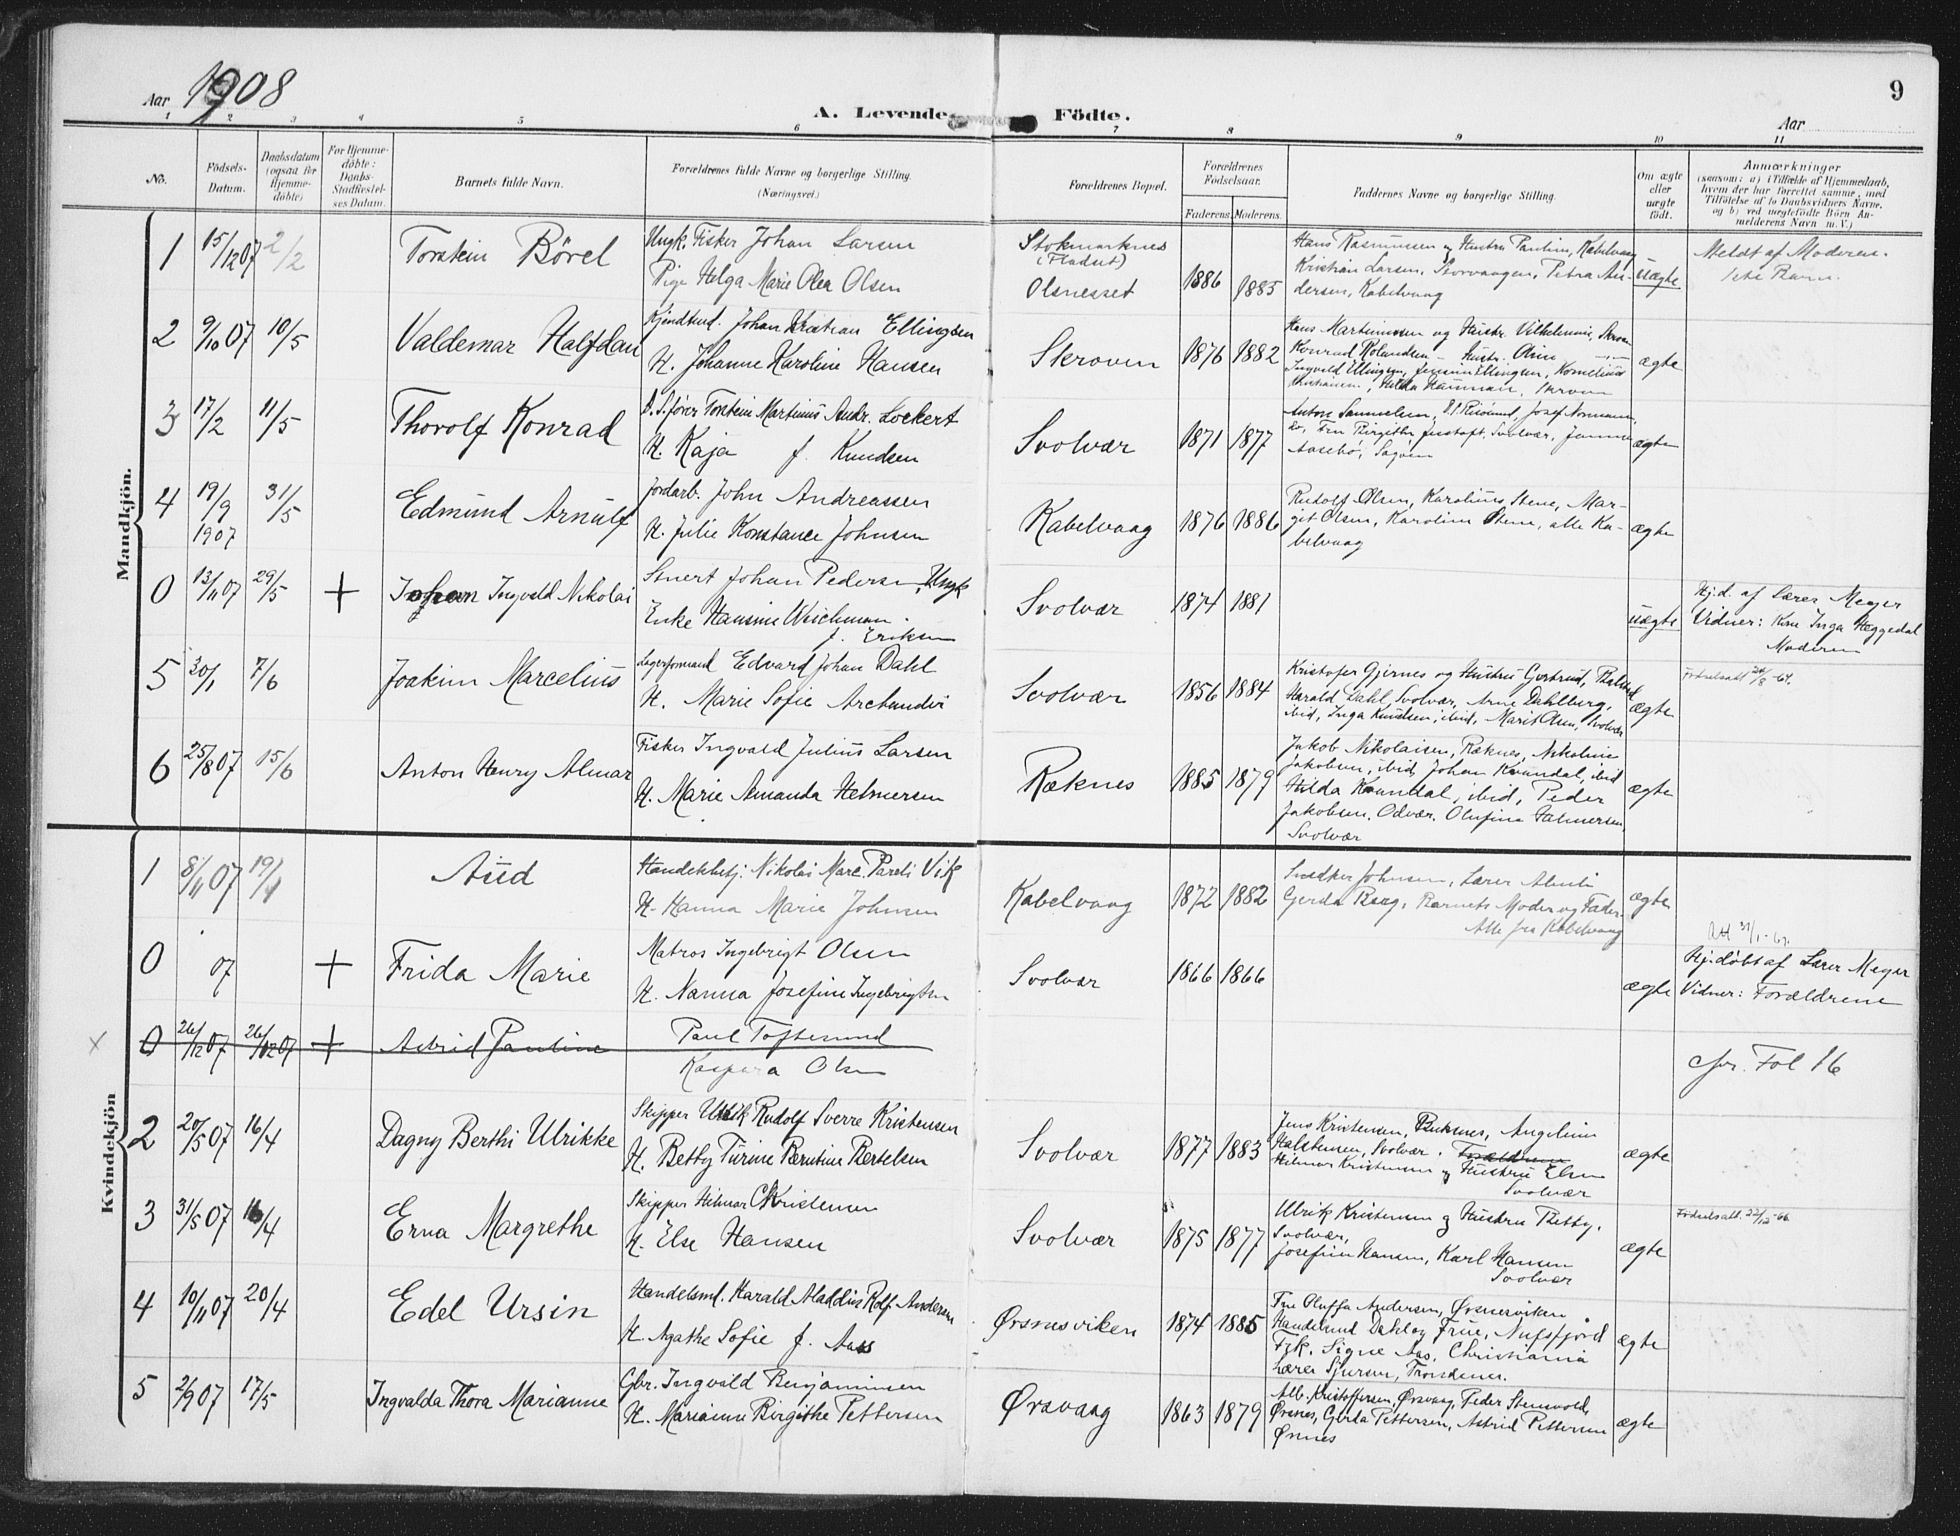 Aar 1908
A. Levende Födte.
9
Aar
1 2 3 4 5 6 7 8 9 10 11
No.
Födsels-Datum.
Daabsdatum (ogsaa for Hjemmedöbte)
For Hjemmedöbte: Daabs-Stadfæstelses Datum.
Barnets fulde Navn.
Forældrenes fulde Navne og borgerlige Stilling. (Næringsvei.)
Forældrenes Bopæl.
Forældrenes Födselsaar.
Faderens. Moderens.
Faddernes Navne og borgerlige Stilling.
Om ægte eller uægte födt.
Anmærkninger
(saasom: a) i Tilfælde af Hjemmedaab, hvem der har forrettet samme, med Tilföielse af to Daabsvidners Navne, og b) ved uægtefödte Börn Anmelderens Navn m. V.)
Mandkjön.
1 15/12 07 2/2 Torstein Börel Ungk. Fisker Johan Larsen Stokmarknes (Fladset) 1886 1885 Hans Rasmussen og Hustru Paulina, Kabelvaag uægte Meldt af Moderen.
Pige Helga Marie Olea Olsen Olsnesset Kristian Larsen, Storvaagen, Petra Andersen, Kabelvaag 1ste Barn.
2 9/10 07 10/5 Valdemar Halfdan Johan Kristian Ellingsen Skroven 1876 1882 Hans Martinussen og Hustr. Vilhelmine, Skroven ægte
H. Johanne Karoline Hansen Konrad Rolandsen - Hustr. Oline
Ingvald Ellingsen, Ellingsen, Kornelius
3 17/2 11/5 Thorolf Konrad Torstein Martinus Andr. Lockert Svolvær 1871 1877 Anton Samuelsen, Josef Normann, ægte
H. Kaja f. Knudsen Fru Birgithe Svolvær,
4 19/9 1907 31/5 Edmund Arnulf Jordarb. John Andreassen Kabelvaag 1876 1886 Rudolf Olsen, Karolius Stene, Margit Olsen, Karoline Stene, alle Kabelvaag ægte
H. Julie Konstance Johnsen
0 13/11 07 29/5 + Johan Ingvald Nikolai Johan Pedersen, Ungk Svolvær 1874 1881 uægte Hj.d. af Lærer Meyer
Enke Hansine Weichman f. Eriksen Vidner: Inga Heggedal
Moderen
5 30/1 7/6 Joakim Marcelius Lagerformand Edvard Johan Dahl Svolvær 1856 1884 Kristofer Gjernes og Hustru Gertrud, ægte Födselsatt. 24/8-64.
H. Marie Sofie Harald Dahl, Svolvær, Arne Dahlberg,
ibid, Inga Knudsen, ibid, Marit Olsen, Svolvær
6 25/8 07 15/6 Anton Henry Almar Fisker Ingvald Julius Larsen Ræknes 1885 1879 Jakob Nikolaisen, Ræknes, Nikoline ægte
H. Marie Amanda Helmersen Jakobsen, ibid, Johan ibid
Hilda ibid, Peder
Jakobsen, Odvær. Olufine Halmersen,
Svolvær
Kvindekjön
1 8/11 07 19/1 Aud Nikolai Marc. Pareli Vik Kabelvaag 1872 1882 Snedker Johnsen, Lærer ægte
H. Hanna Marie Johnsen Gerda Berg, Barnets Moder og Fader
Alle fra Kabelvaag
0 07 + Frida Marie Matros Ingebrigt Olsen Svolvær 1866 1866 ægte Att 31/1-67.
H. Nanna Josefine Ingebrigtsen Hj.döbt af Lærer Meyer
Vidner: Forældrene
x 0 26/12 07 26/12 07 + Astrid Pauline Paul Toftesund
Kaspara Olsen cfr. Fol 16
2 20/5 07 16/4 Dagny Berthi Ulrikke Skipper Ulrik Rudolf Sverre Kristensen Svolvær 1877 1883 Jens Kristensen, Angeline ægte
H. Betty Turine Bertelsen Svolvær. Forældrene
Hilmar Kristensen og Hustru Else
Svolvær
3 31/5 07 16/4 Erna Margrethe Skipper Hilmar Kristensen Svolvær 1875 1877 Ulrik Kristensen og Hustru Betty, ægte Födselsatt. 22/12-66
H. Else Hansen Svolvær,
Josefine Hansen, Karl Hansen
Svolvær
4 10/11 07 20/4 Edel Ursin Handelsm. Harald Aladdius Rolf Andersen Ørsnesviken 1874 1885 Fru Oluffa Andersen, Ørsnesviken ægte
H. Agathe Sofie f. Aass Handelsmd Dahl og Frue, Nufsfjord
Frk. Signe Aas, Christiania
Lærer Sjursen, Trondenes.
5 2/9 07 17/5 Ingvalda Thora Marianne Gbr. Ingvald Benjaminsen Ørsvaag 1863 1879 Alb. Kristoffersen, Ørsvaag, Peder Stensvold, ægte
H. Marianne Birgithe Pettersen Ørsnes, Gerda Pettersen, Astrid Pettersen
Ørsnes